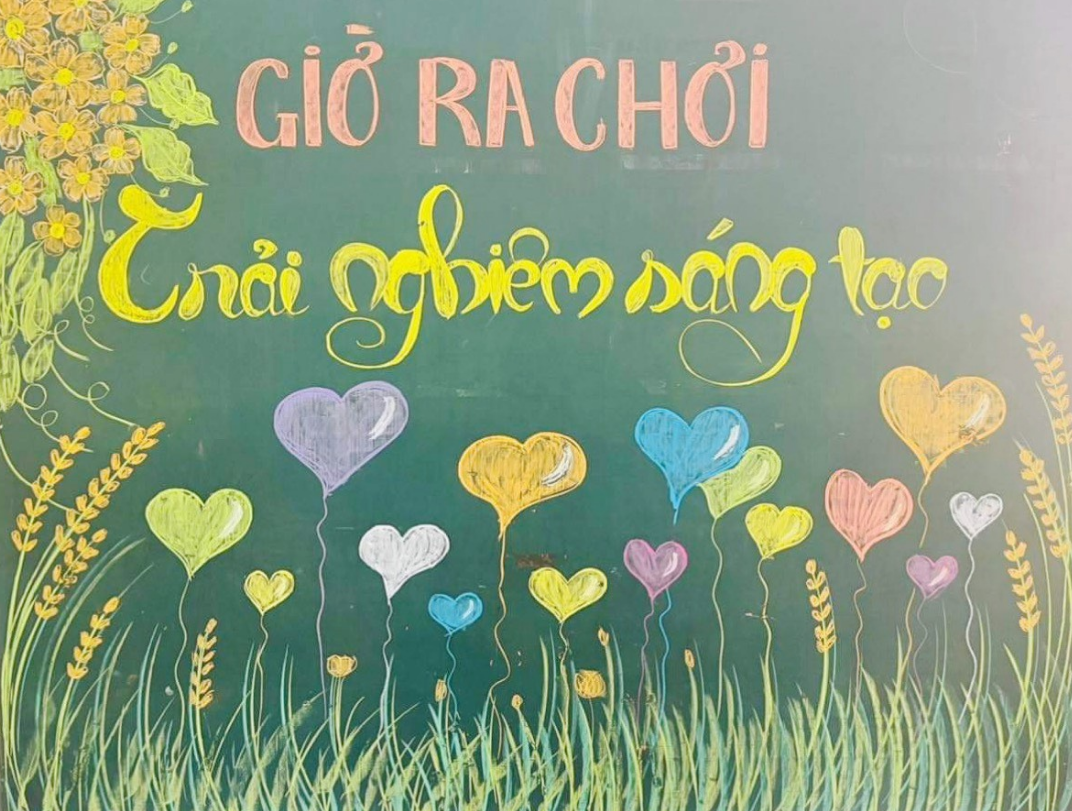 GIỜ RA CHƠI
Trải nghiệm sáng tạo